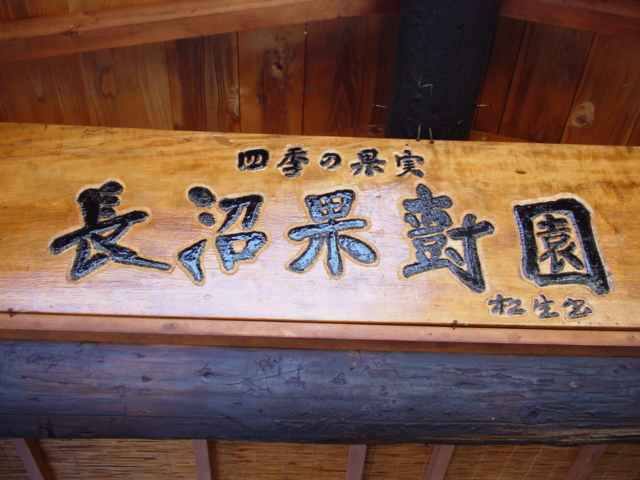 四季の果実
長沼果樹園
松生書